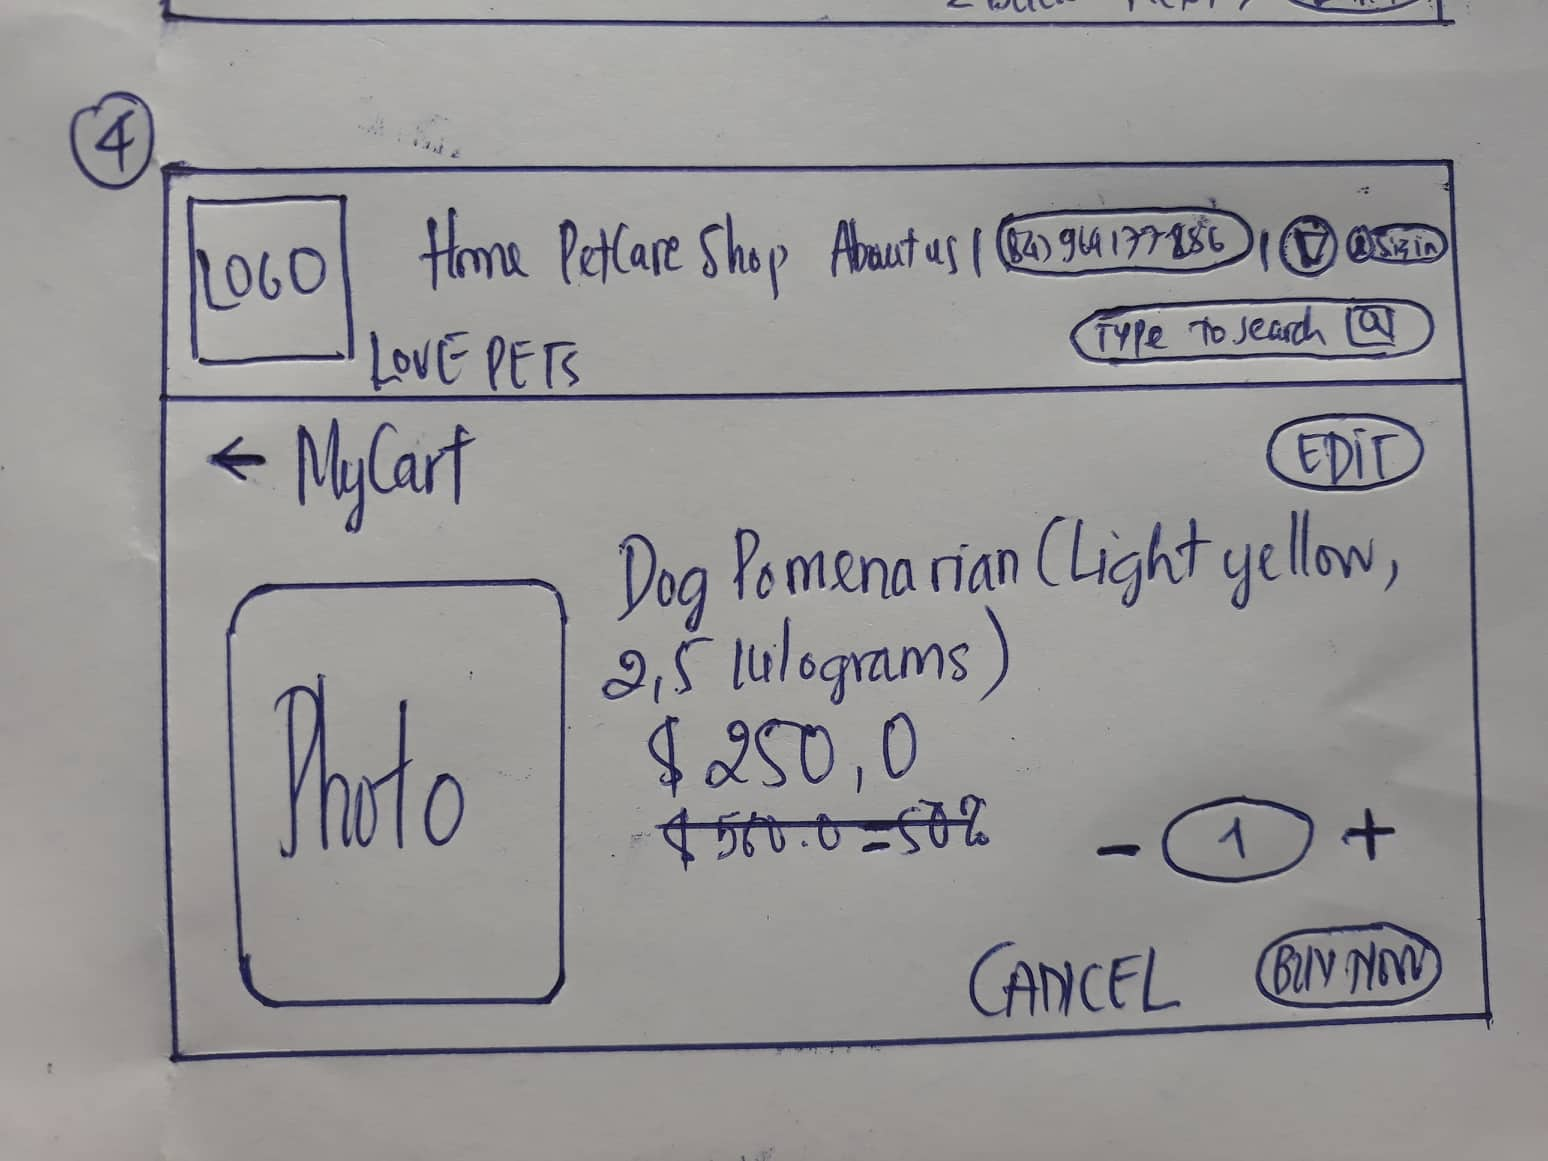 4
LOGO
Home PetCare Shop About us | (84) 964177 886 | Sign in
Type To search
LOVE PETS
← MyCart
EDIT
Dog Pomenarian (Light yellow,
2,5 kilograms)
$ 250,0
$ 500.0 - 50%
- 1 +
Photo
CANCEL BUY NOW